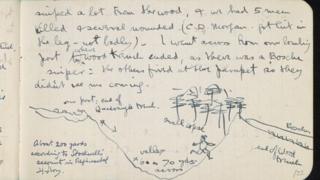 sniped a lot from the wood, & we had 5 men
killed & several wounded (C.D. Morgan. got hit in
the leg - not badly). - I went across from our bombing
post, where wood trench ended, as there was a Bosche
sniper: the others fired at the parapet as they
didn't see me coming.
our post, end of
Quadrangle trench.
small copse
valley
70 yds
across
Bosche
end of Wood
trench
About 200 yards
according to Stockwell's
account in Regimental
History.